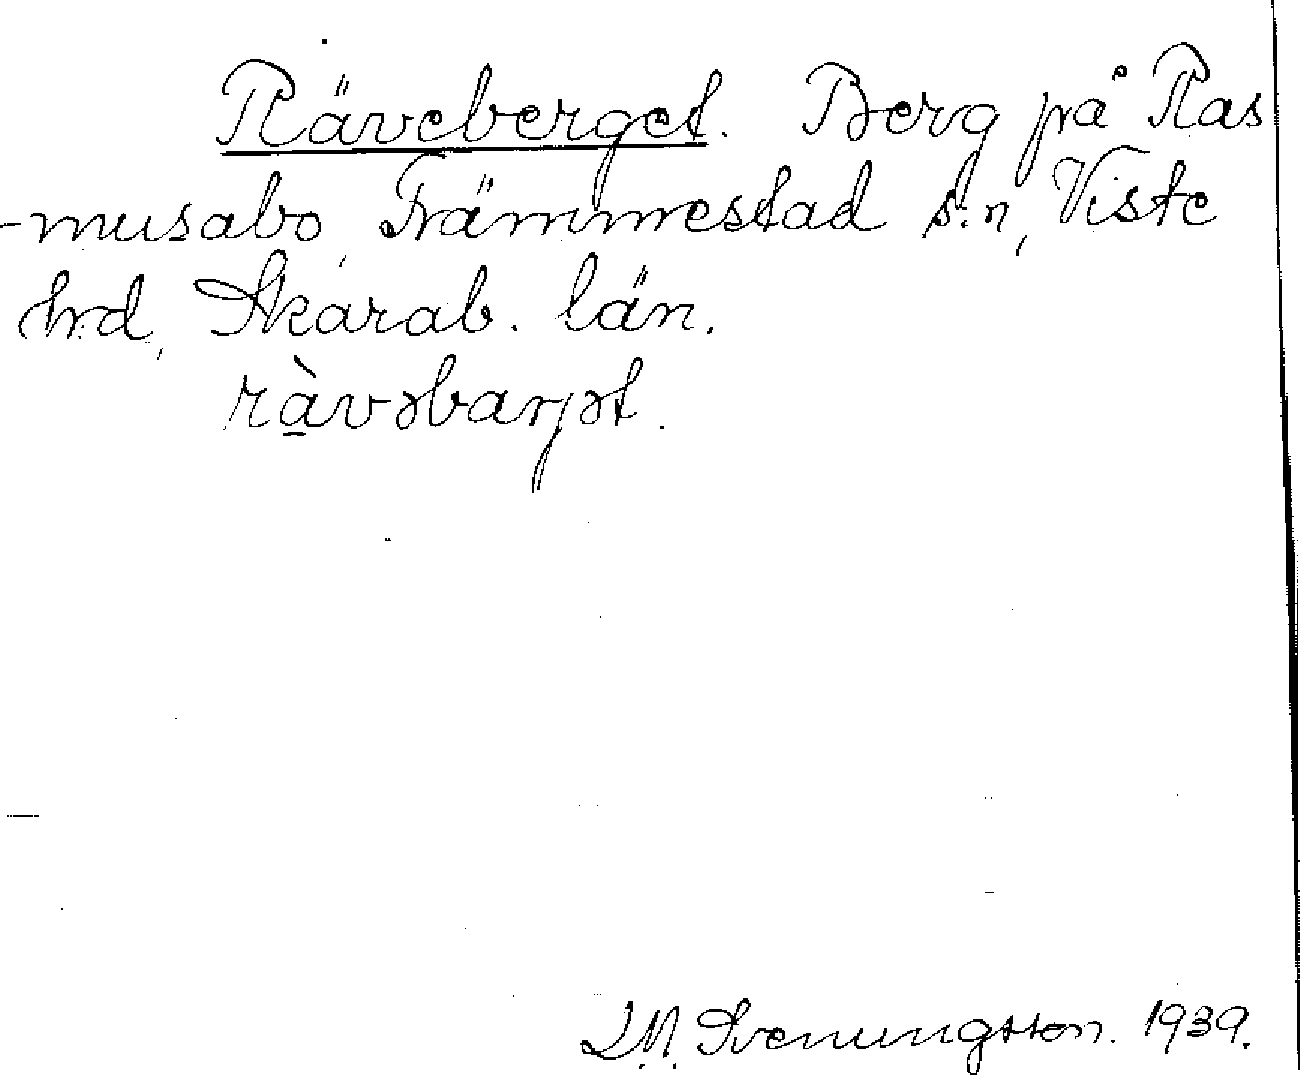 Räveberget. Berg på Ras
-musabo, Främmestad s:n, Viste
hrd, Skarab. län.
rà̱vəbarjət.
L.M. Svenungsson. 1939.